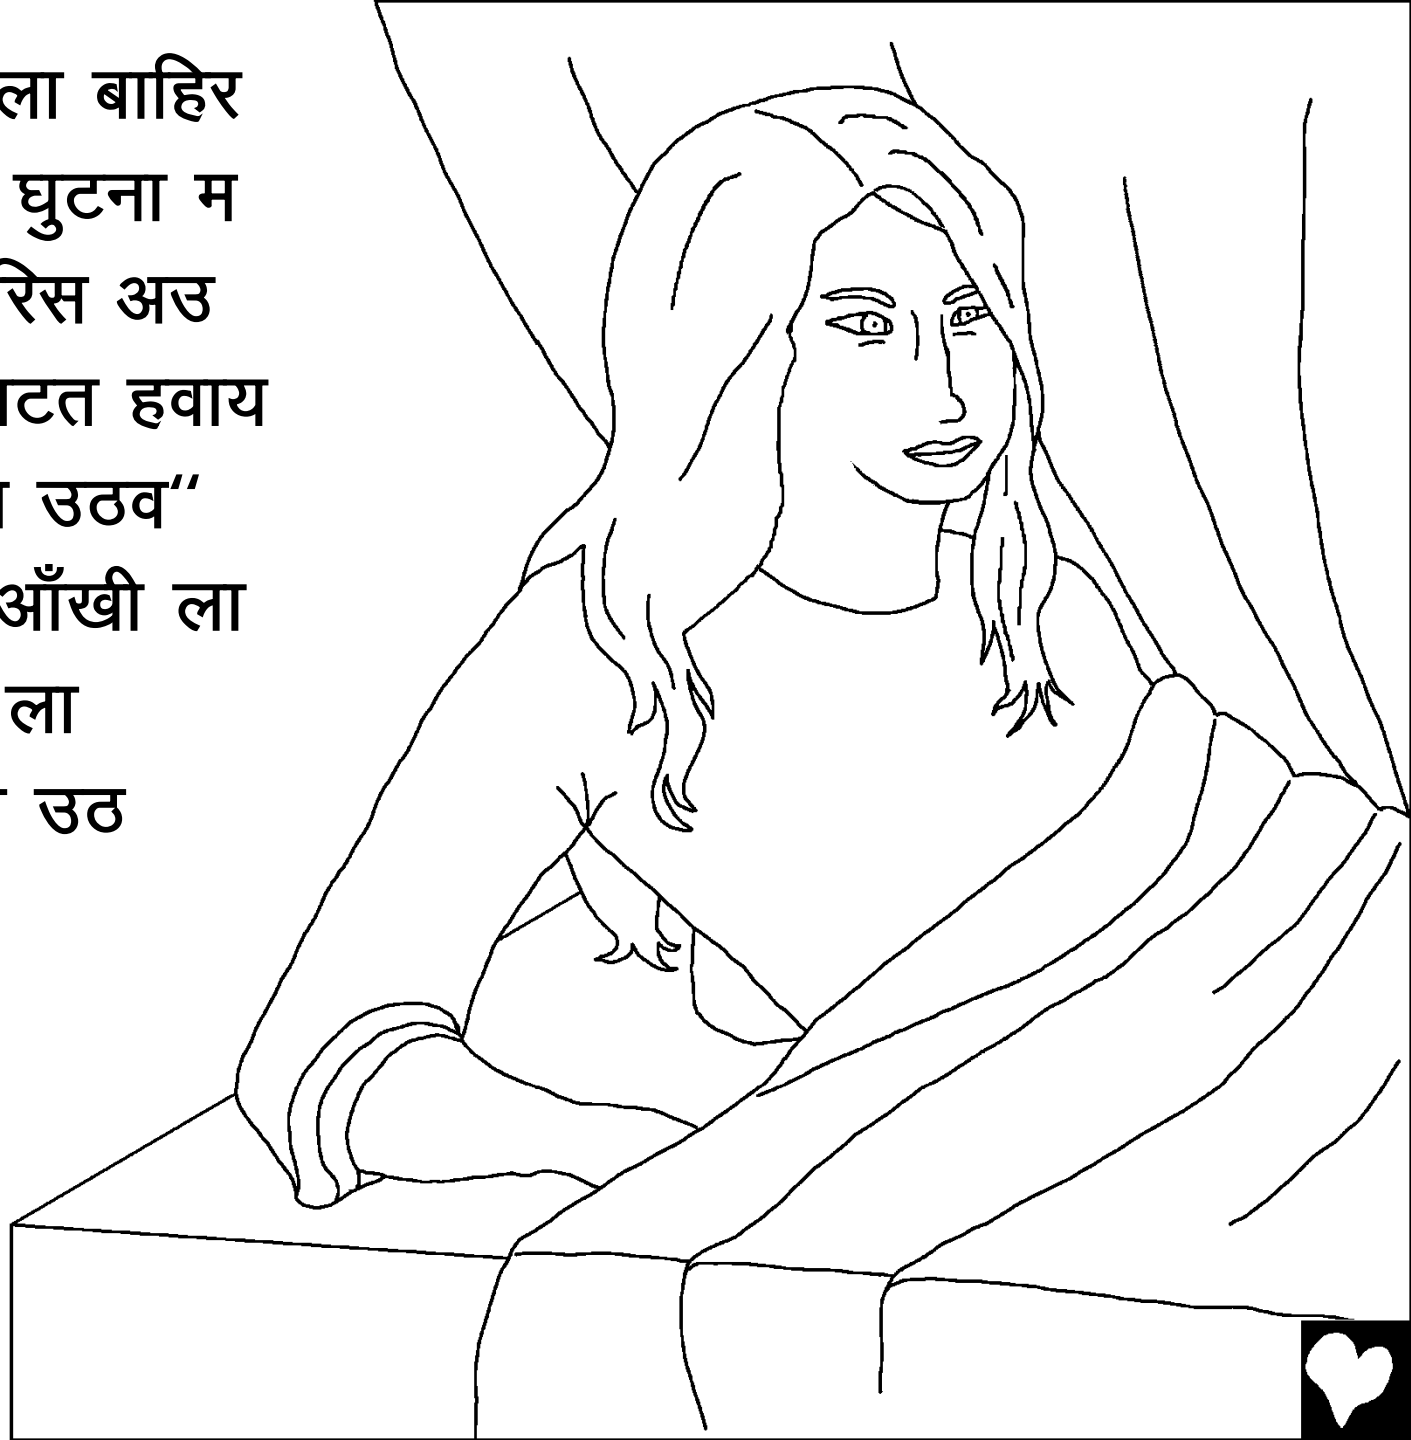 ला बाहिर
घुटना म
रिस अउ
टत हवाय
उठव“
आँखी ला
ला
उठ